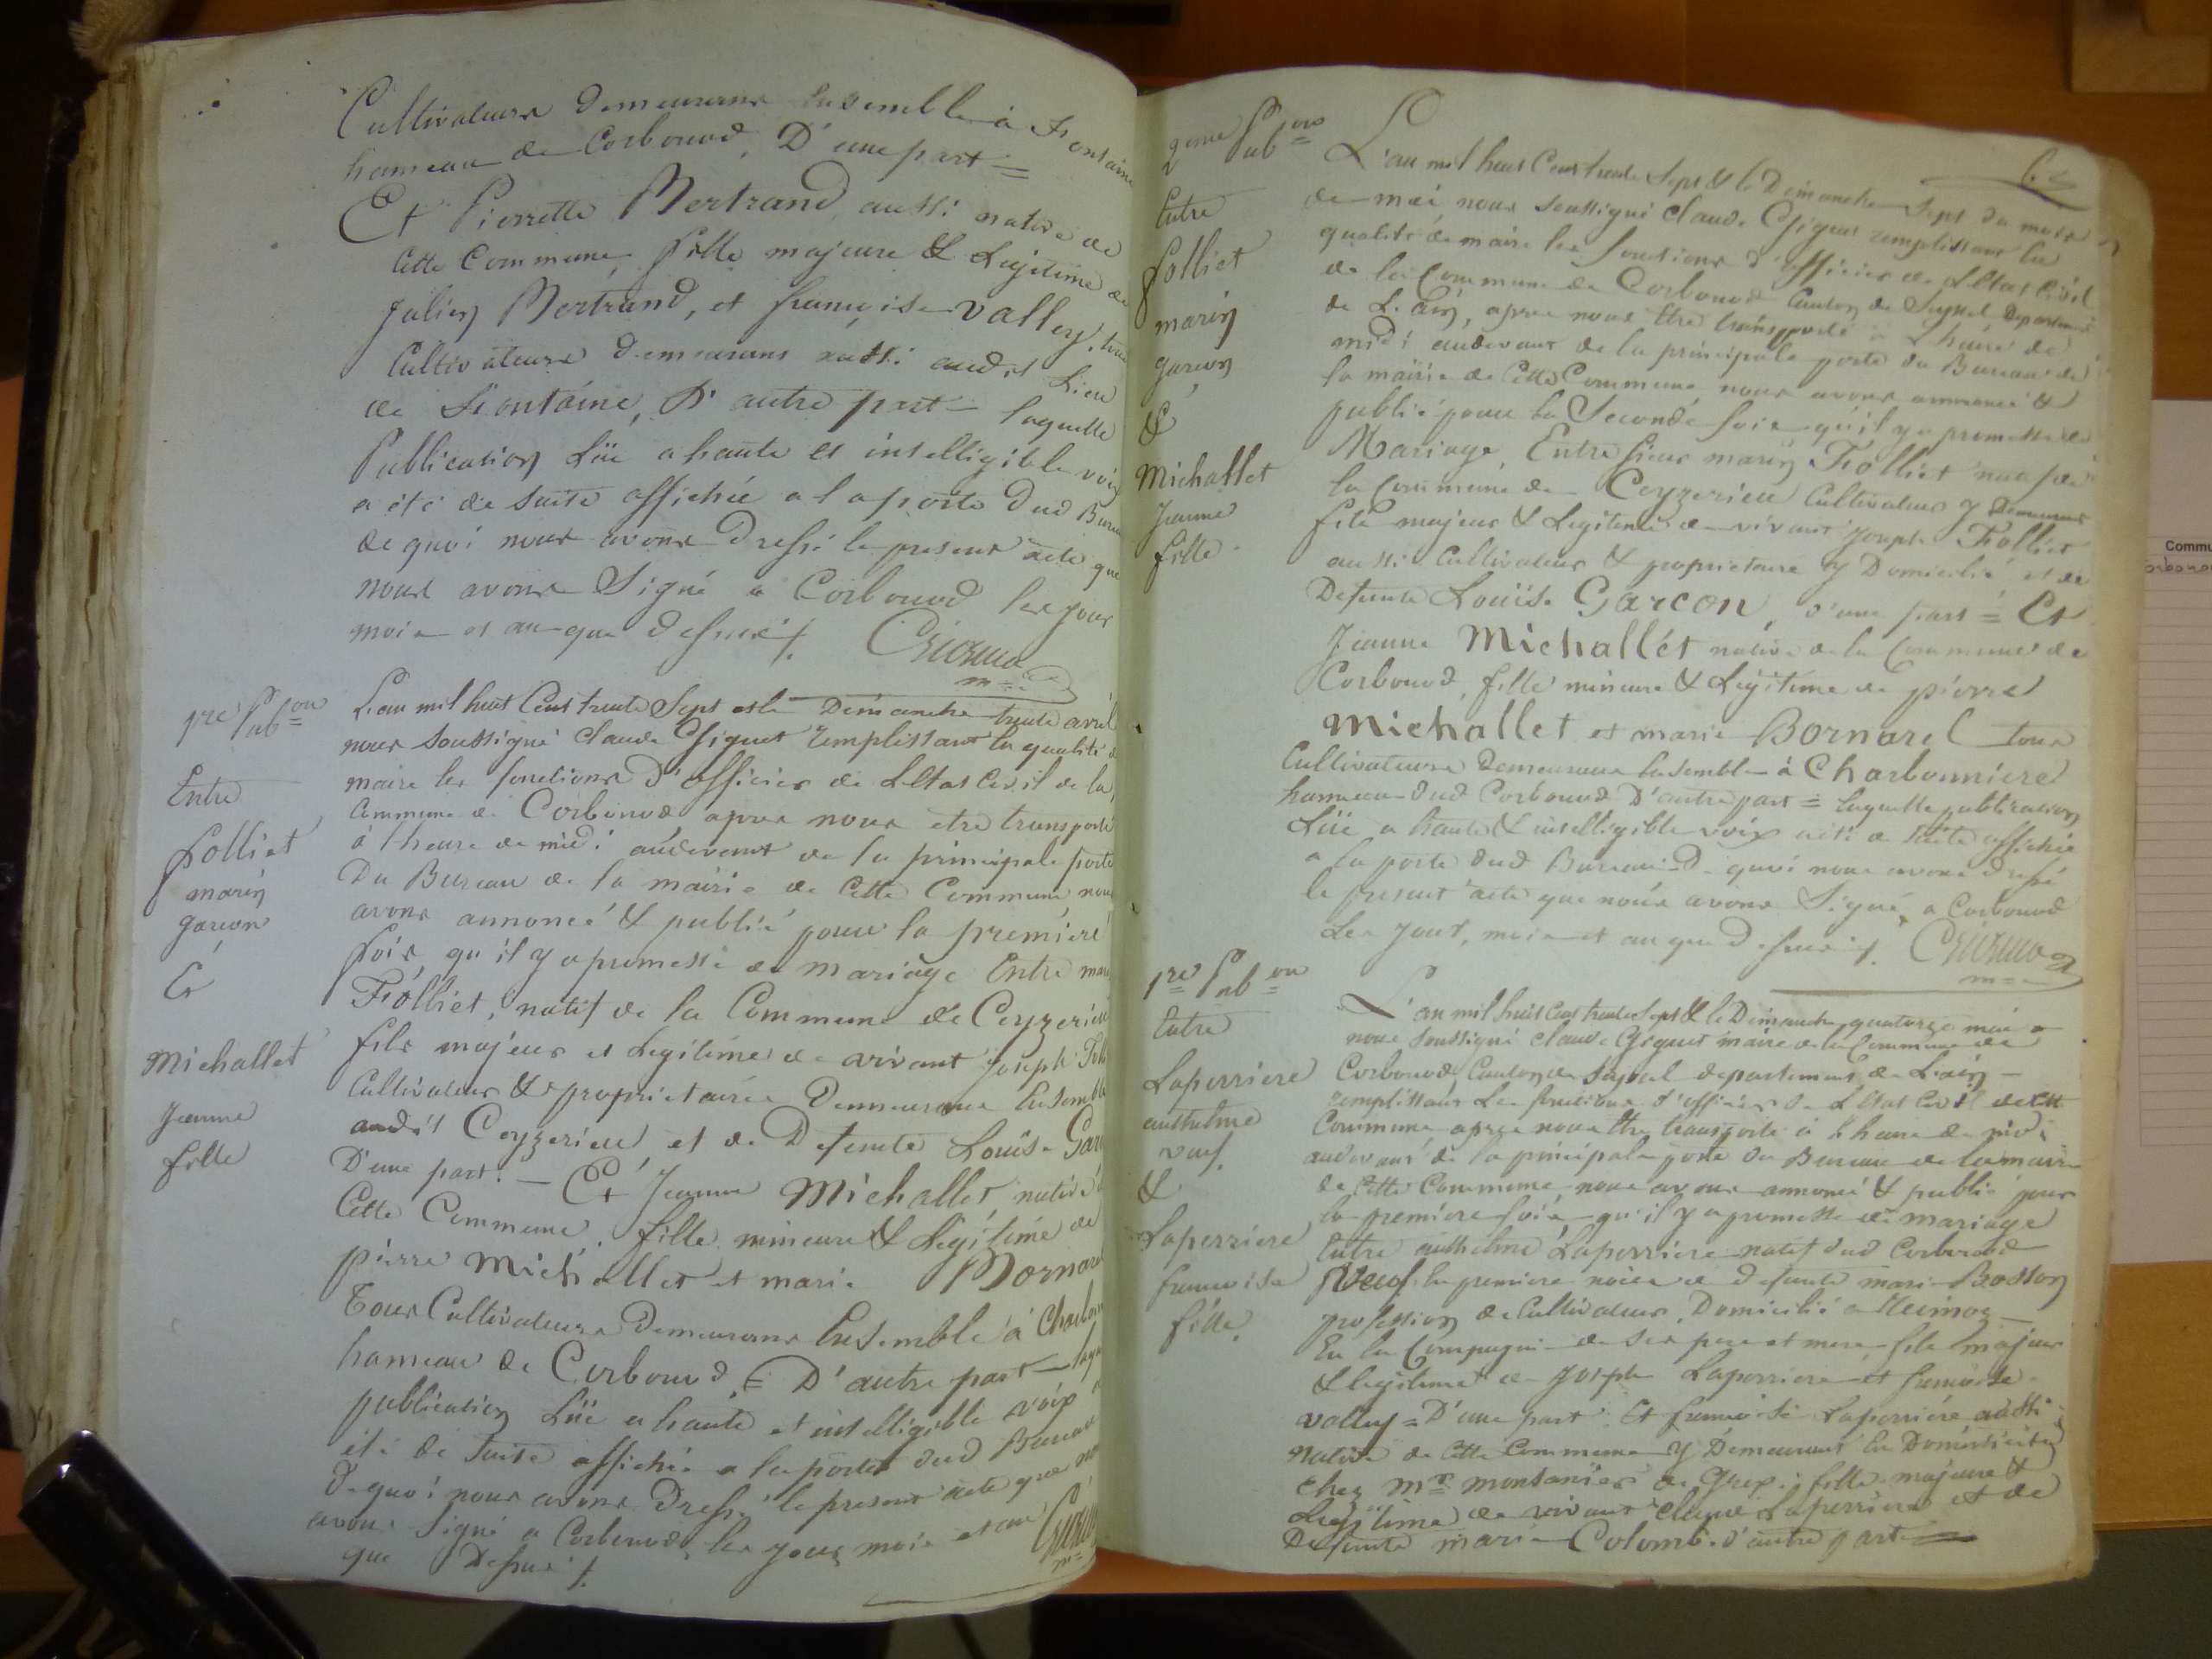 Cultivateurs demeurans Ensemble à Fontaine
hameau de Corbonod, D'une part =
Et Pierrette Bertrand aussi native de
Cette Commune, fille majeure & Legitime de
Julien Bertrand, et françoise Vallery, tous
Cultivateurs demeurans aussi audit Lieu
de Fontaine, D'autre part = laquelle
Publication Lüe a haute et intelligible voix
a été de suite affichée a la porte dud Bureau
de quoi nous avons Dressé le present acte que
nous avons Signé a Corbonod les jour
mois et an que dessus ./.
pre Pub=on
Entre
folliet
marin
garcon
Et
Michallet
Jeanne
fille
L'an mil huit Cent trente Sept et le Dimanche trente avril
nous soussigné Claude Gignet remplissant la qualité de
maire les fonctions d'officier de L'Etat Civil de la
Commune de Corbonod apres nous etre transporté
à l'heure de midi audevant de la principale porte
Du Bureau de la mairie de Cette Commune nous
avons annoncé & publié pour la premiere
fois, qu'il y a promesse de mariage Entre marin
Folliet, natif de la Commune de Ceyzerieu
fils majeur et Legitime de vivant Joseph Foll
Cultivateur & proprietaire Demeurans Ensemble
audit Ceyzerieu, et de Defunte Louïse Garc
D'une part. — Et Jeanne Michallet, native de
Cette Commune, fille mineure & Légitime de
pierre Michallet et marie Bornard
Tous Cultivateurs Demeurans Ensemble à Charbon
hameau de Corbonod, = D'autre part = laque
publication Lüe a haute et intelligible voix a
été de Suite affichée a la porte dud Bureau
De quoi nous avons Dressé le present acte que nous
avons Signé a Corbonod, les jour, mois et an
que Dessus ./.
2eme Pub=on
Entre
folliet
marin
garcon
&
Michallet
Jeanne
fille
L'an mil huit Cent trente Sept & le Dimanche Sept du mois
de mai nous soussigné Claude Gignet remplissant la
qualité de maire les fonctions d'officier de L'Etat Civil
de la Commune de Corbonod Canton de Seyssel Departement
de L'ain, apres nous être transporté à l'heure de
midi audevant de la principale porte du Bureau de
la mairie de Cette Commune, nous avons annoncé &
publié pour la Seconde fois qu'il y a promesse de
Mariage, Entre Sieur marin Folliet natif de
la Commune de Ceyzerieu Cultivateur y Demeurant
fils majeur & Legitime de vivant Joseph Folliet
aussi Cultivateur & proprietaire y Domicilié et de
Defunte Louïse Garcon, d'une part = Et
Jeanne Michallét native de la Commune de
Corbonod, fille mineure & Légitime de pierre
Michallet et marie Bornard tous
Cultivateurs Demeurans Ensemble à Charbonniere
hameau dud Corbonod D'autre part = laquelle publication
Lüe a haute & intelligible voix a été de suite affichée
a la porte dud Bureau De quoi nous avons dressé
le present acte que nous avons Signé, a Corbonod
Les jour, mois et an que Dessus ./.
1re Pub=on
Entre
Laperriere
anthelme
veuf.
&
Laperriere
francoise
fille.
L'an mil huit Cent trente Sept & le Dimanche quatorze mai
nous soussigné Claude Gignet maire de la Commune de
Corbonod, Canton de Seyssel departement de L'ain —
remplissant Les fonctions d'officier de L'Etat Civil de cette
Commune, apres nous être transporté à l'heure de midi
audevant de la principale porte du Bureau de la mairie
de Cette Commune nous avons annoncé & publié pour
la premiere fois, qu'il y a promesse de mariage
Entre anthelme Laperriere natif dud Corbonod
Veuf en premiere noces de defunte marie Bosson
profession de Cultivateur, Domicilié a
En la Compagnie de Ses pere et mere, fils majeur
& legitime de Joseph Laperriere et francoise
vallery = D'une part. Et francoise Laperriére aussi
Native de Cette Commune y Demeurant En Domesticité
Chez Mr. montanier de fille majeure &
Legitime de vivant Laperriere et de
Defunte marie Colomb. d'autre part =
Commu